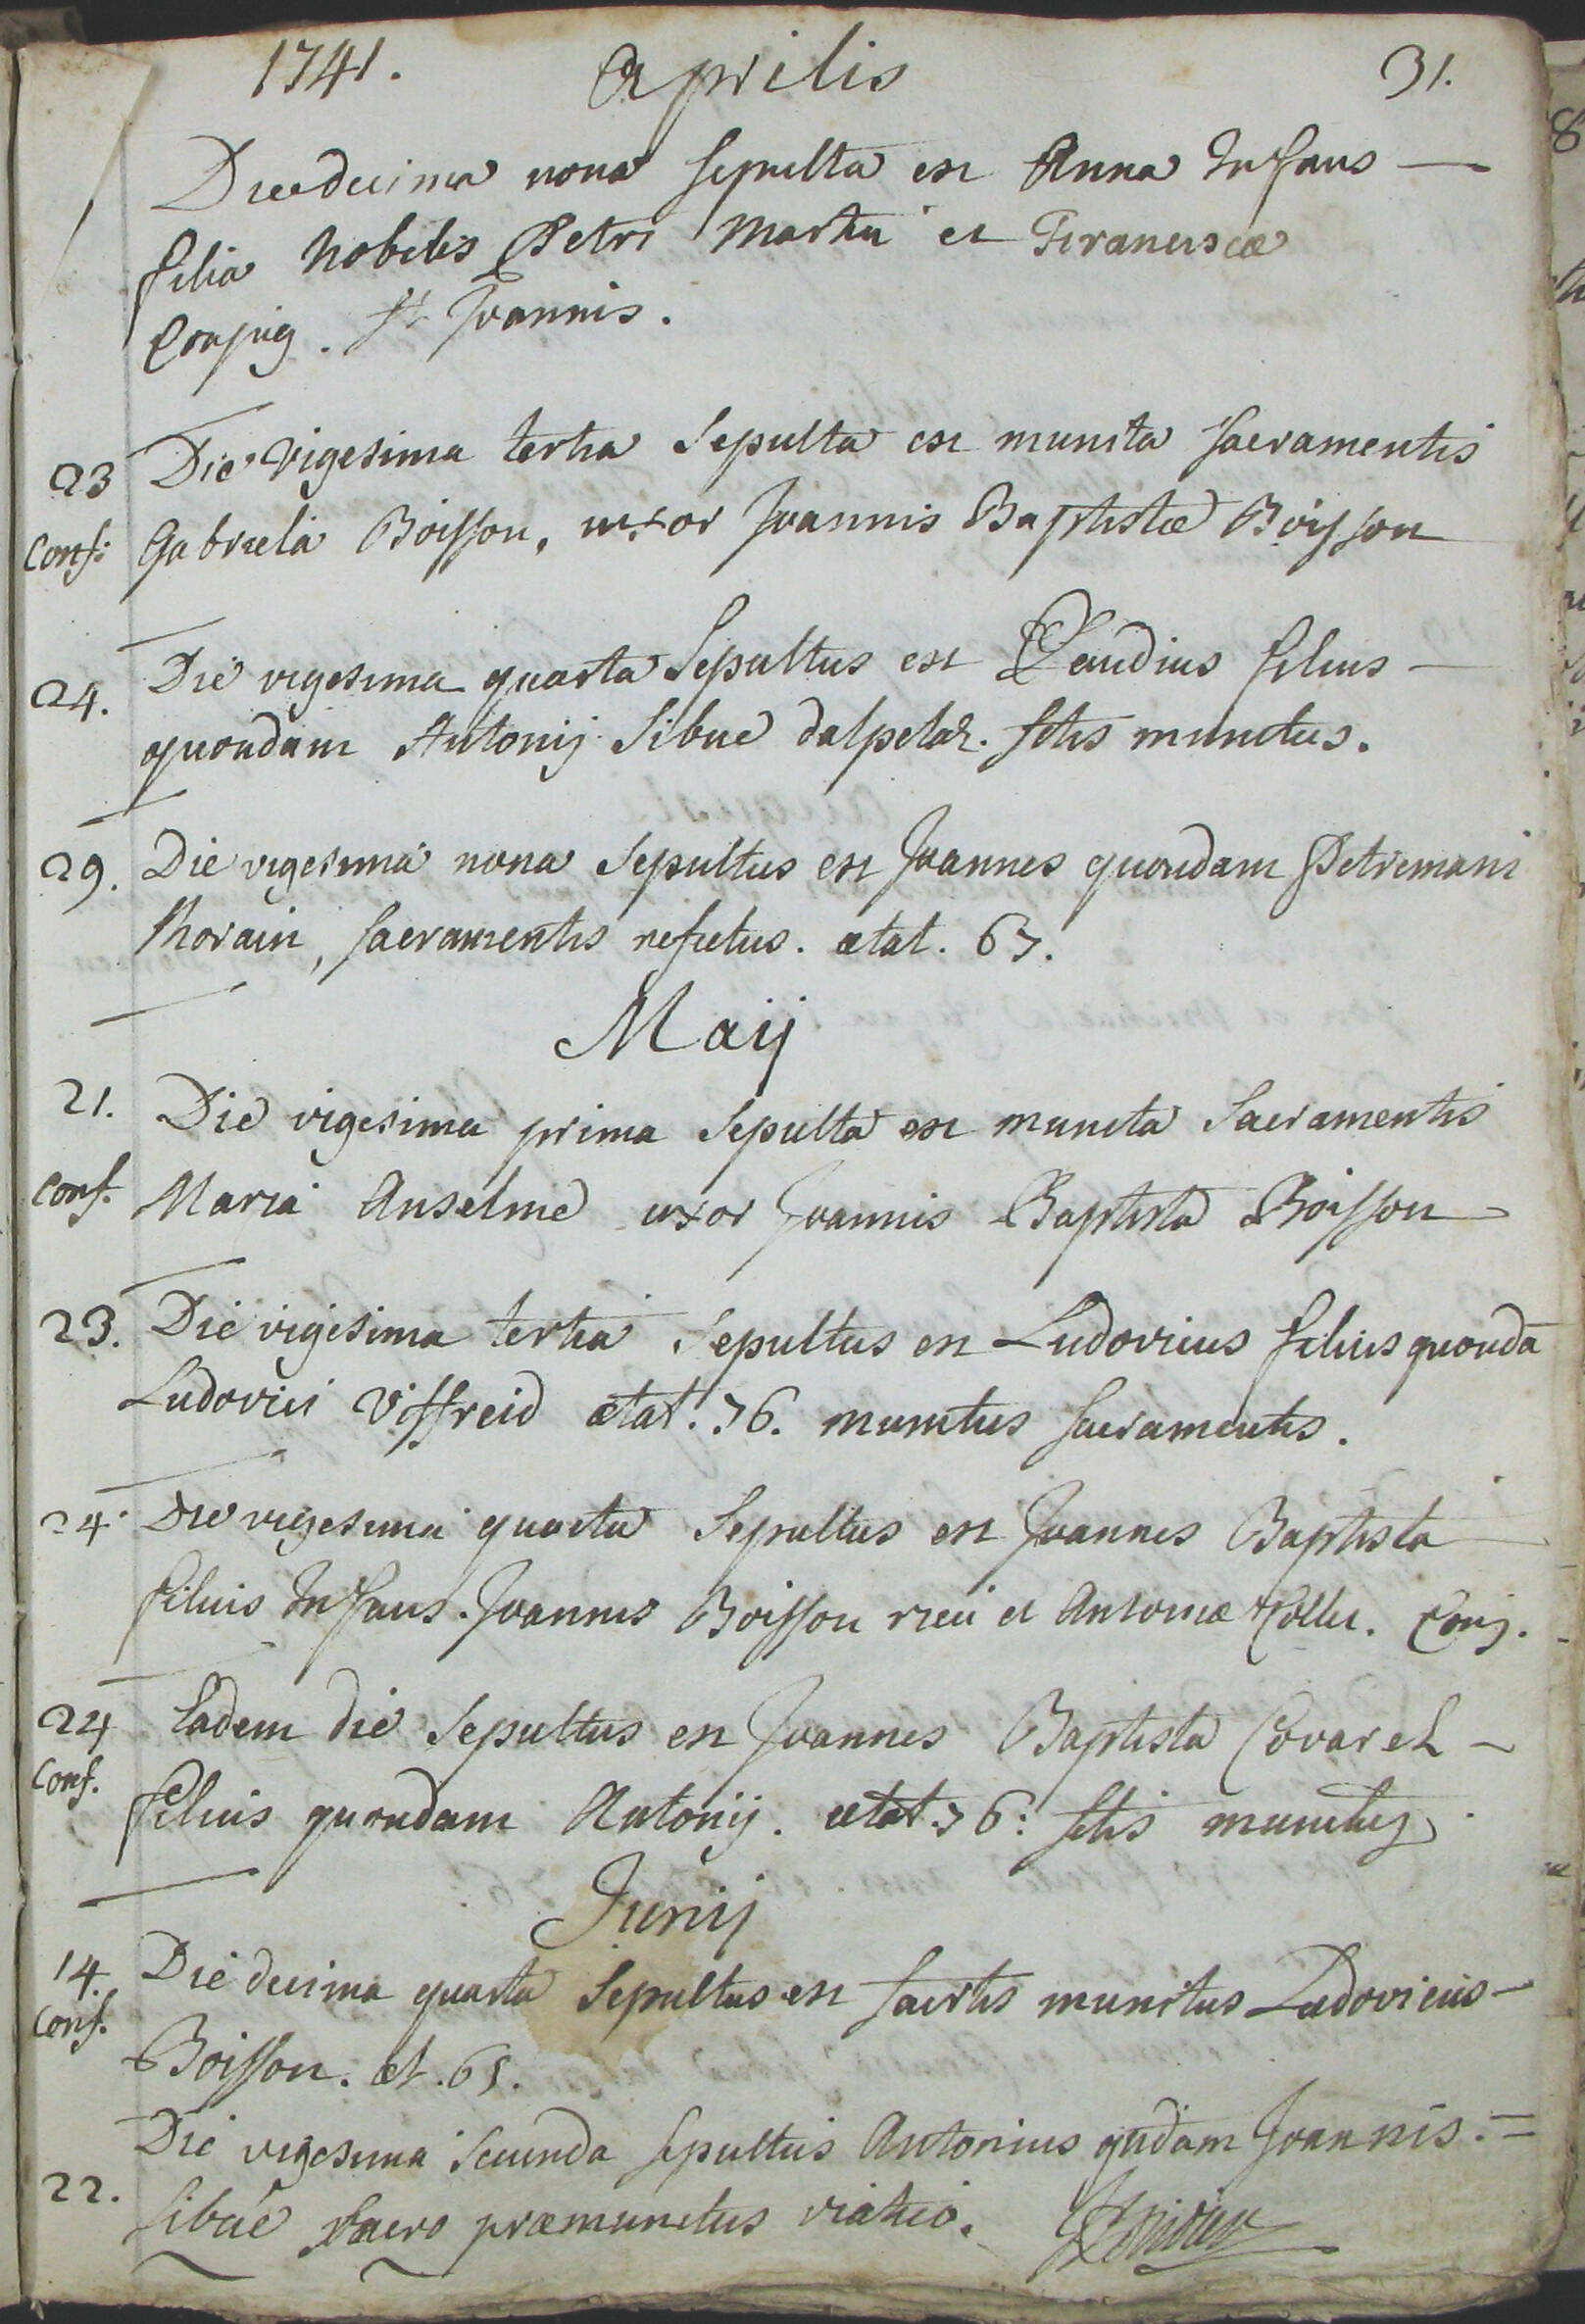 1741. Aprilis 31.
Die decima nona sepulta est Anna Infans —
filia Nobilis Petri Martin et Franciscæ
Conjug. St Joannis.
23 Die vigesima tertia Sepulta est munita sacramentis
Conf: Gabriela Boisson, uxor Joannis Baptistæ Boisson
24. Die vigesima quarta Sepultus est Claudius filius —
quondam Antonij Sibue dalpelaz. sctis munitus.
29. Die vigesima nona Sepultus est Joannes quondam Petremani
Morain, sacramentis refectus. ætat. 67.
Maij
21. Die vigesima prima Sepulta est munita Sacramentis
Conf. Maria Anselme uxor Joannis Baptista Boisson
23. Die vigesima tertia Sepultus est Ludovicus filius quondā
Ludovici Viffreid ætat. 76. munitus sacramentis.
24. Die vigesima quarta Sepultus est Joannes Baptista
filius Infans. Joannis Boisson et Antoniæ Conj.
24 Eadem die Sepultus est Joannes Baptista Covarel —
Conf. filius quondam Antonij. ætat. 76: sctis munitus
Junij
14. Die decima quarta Sepultus est sacrtis munitus Ludovicus —
Conf. Boisson. æt. 65.
Die vigesima secunda sepultus Antonius qudam Joannis. =
22. Sibue sacro præmunitus viatico.